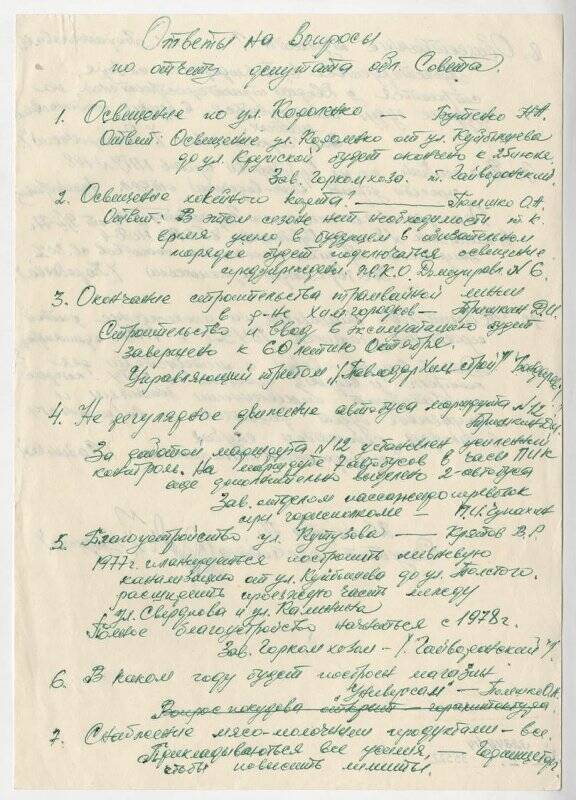 Ответы на вопросы
по отчету депутата обл. Совета.
1. Освещение по ул. Короленко — Бутенко Н.А.
Ответ: Освещение ул. Короленко от ул. Куйбышева
до ул. Крупской будет окончено к 25 июня.
Зав. Горкомхоза. т. Гайворонский.
2. Освещение хокейного карта? — Полишко О.А.
Ответ: В этом сезоне нет необходимости т.к.
время ушло, в будущем в обязательном
порядке будет подключаться освещение
№ 6.
3. Окончание строительства трамвайной линии
в р-не Химгородков — Тришкин Д.И.
Строительство и ввод в эксплуатацию будет
завершено к 60 летию Октября.
Управляющий трестом "Павлодар Хим строй"
4. Не регулярное движение автобуса маршрута № 12
За работой маршрута № 12 установлен усиленный
контроль. На маршруте 7 автобусов в часы ПИК
еще дополнительно выделено 2-автобуса
Зав. отделом пассажироперевозок
при горисполкоме —
5. Благоустройство ул. Кутузова — Кряжов В.Р.
1977г. планируется построить ливневую
канализацию от ул. Куйбышева до ул. Толстого.
расширить проезжую часть между
ул. Свердлова и ул. Калинина
Полное благоустройство начнется с 1978г.
Зав. Горкомхозом — /Гайворонский/
6. В каком году будет построен магазин
"Универсам" —
Вопрос открыт
7. Снабжение мясо-молочными продуктами — все.
Прикладываються все усилия, —
чтобы повысить лимиты.